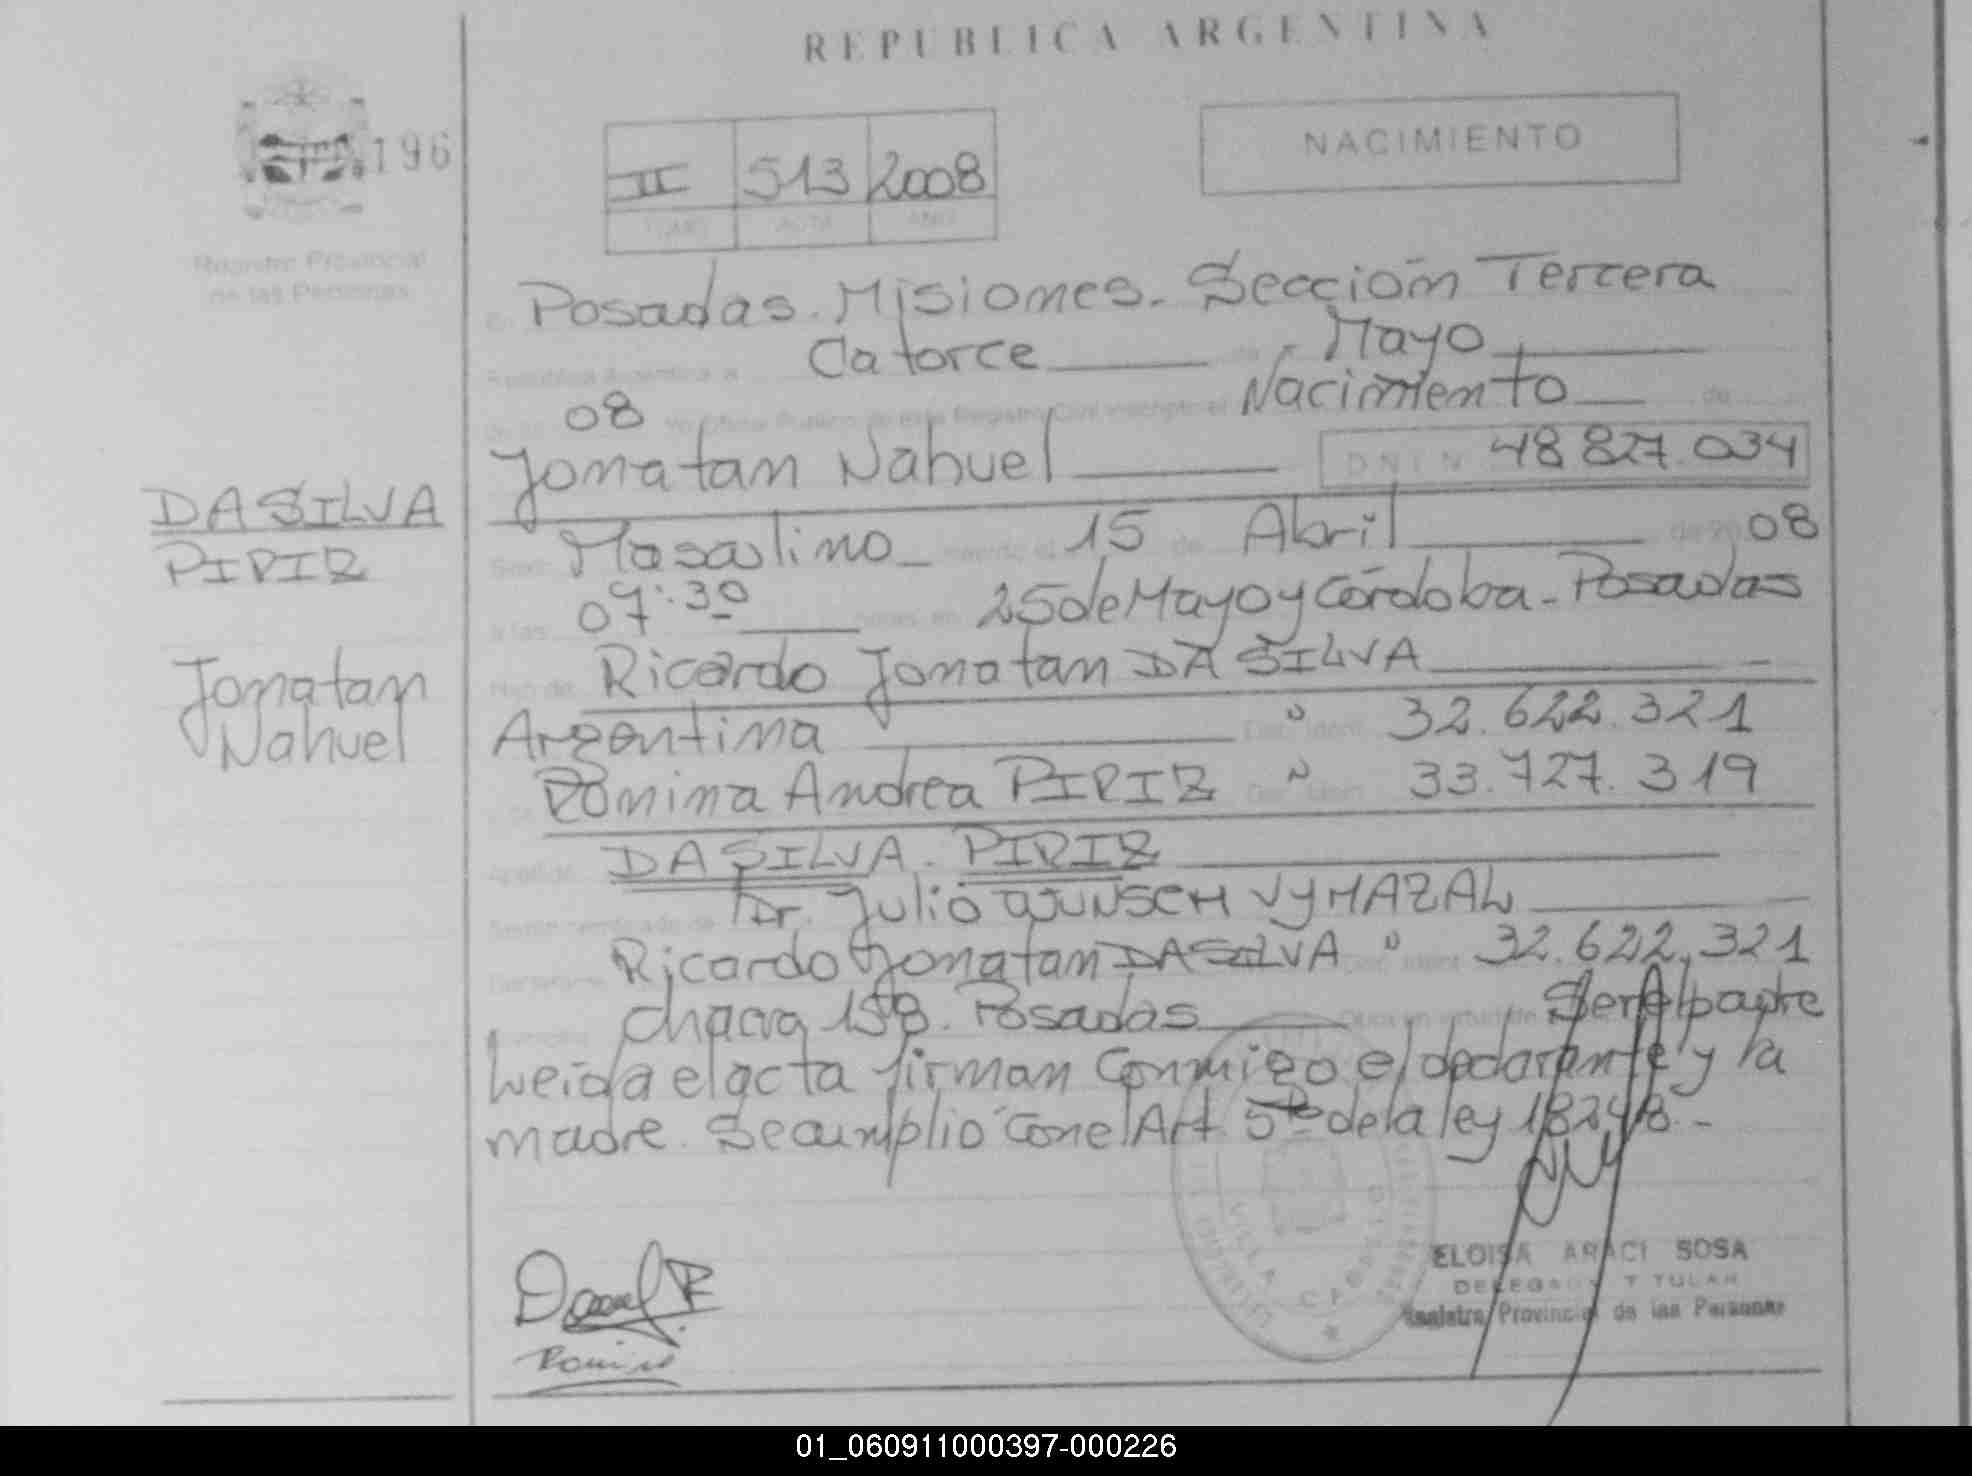 REPUBLICA ARGENTINA
196
Registro Provincial
de las Personas
II 513 2008
TOMO ACTA AÑO
NACIMIENTO
En Posadas. Misiones. Sección Tercera
República Argentina a Catorce de Mayo
de 20 08 Yo Oficial Público de este Registro Civil inscripto el Nacimiento de
Jonatan Nahuel DNI N 48 827.034
DA SILVA
PIRIZ
Jonatan
Nahuel
Sexo Masculino nacido el 15 de Abril de 20 08
a las 07:30 horas en 25 de Mayo y Córdoba - Posadas
Hijo de Ricardo Jonatan DA SILVA
Argentina Doc. Ident. 32.622.321
Romina Andrea PIRIZ Doc. Ident. 33.727.319
Apellido DA SILVA. PIRIZ
Según certificado de Dr. Julio WUNSCH VYMAZAL
Declarante Ricardo Jonatan DA SILVA Doc. Ident. 32.622.321
Domicilio Chacra 158. Posadas Obra en virtud de Ser el padre
Leida el acta firman Conmigo el declarante y la
madre. Se cumplio con el Art 5to de la ley 18248.-
VILLA CABELLO
ELOISA ARACI SOSA
DELEGADA TITULAR
Registro Provincial de las Personas
01_060911000397-000226